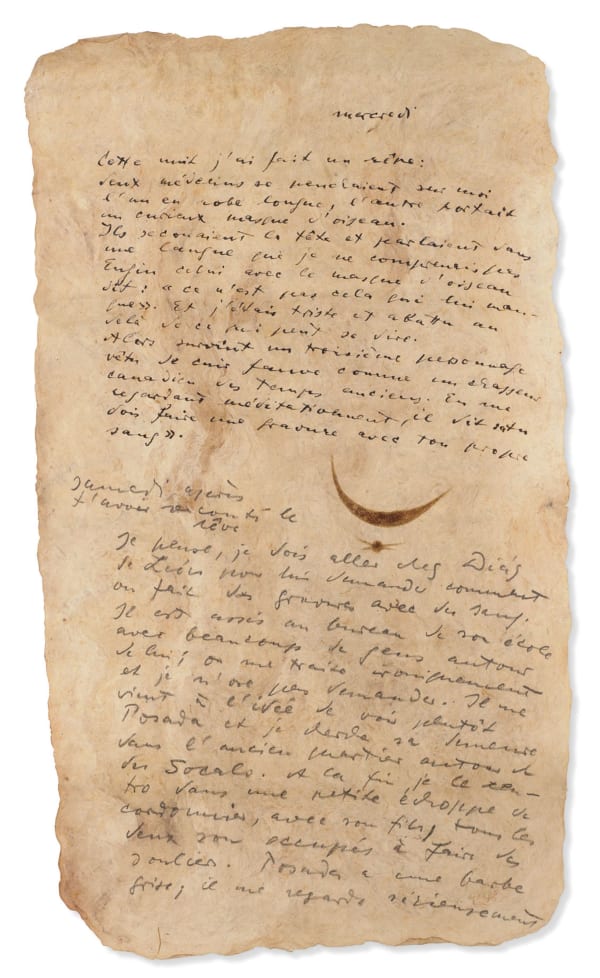 mercredi
Cette nuit j'ai fait un rêve:
deux médecins se penchaient sur moi
l'un en robe longue, l'autre portait
un curieux masque d'oiseau.
Ils secouaient la tête et parlaient dans
une langue que je ne comprenais pas
Enfin celui avec le masque d'oiseau
dit: « ce n'est pas cela qui lui man-
que». Et j'étais triste et abattu au
delà de ce qui peut se dire.
Alors survint un troisième personnage
vêtu de cuir fauve comme un chasseur
canadien des temps anciens. En me
regardant méditativement, il dit «tu
dois faire une gravure avec ton propre
sang».
samedi après
t'avoir raconté le
rêve
Je pense, je dois aller chez Diég
de Léon pour lui demander comment
on fait des gravures avec du sang.
Il est assis au bureau de son école
avec beaucoup de gens autour
de lui; on me traite ironiquement
et je n'ose pas demander. Il me
vient à l'idée de voir plutôt
Posada et je cherche sa demeure
dans l'ancien quartier autour de
du Socalo. A la fin je le ren-
tro dans une petite échoppe de
cordonnier, avec son fils, tous les
deux son occupés à faire des
soulier. Posada a une barbe
grise; il me regarde sérieusement